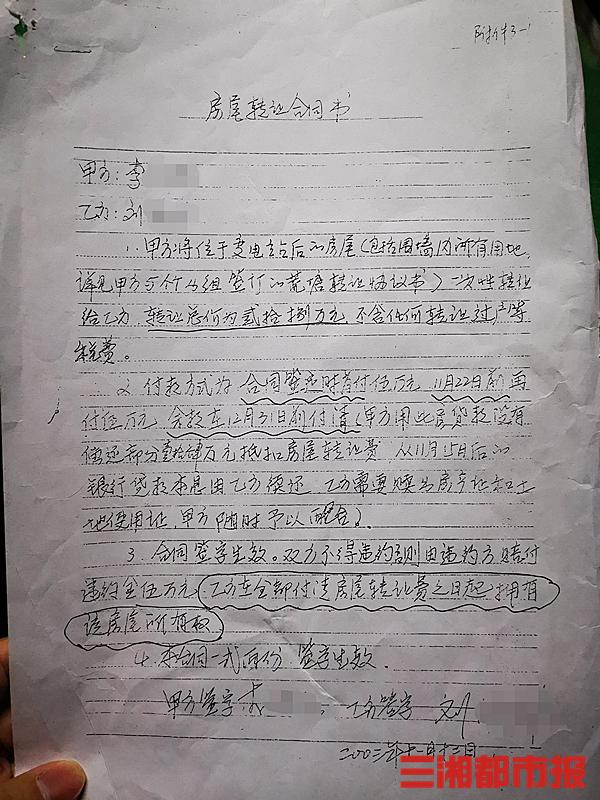 附件3-1
房屋转让合同书
甲方:李
乙方:刘
1、甲方将位于变电站后的房屋(包括围墙内所有用地,
详见甲方与个 组签订的荒塘转让协议书)一次性转让
给乙方,转让总价为贰拾捌万元,不含任何转让过户等
税费。
2、付款方式为合同签定时首付伍万元,11月22日前再
付伍万元,余款在12月31日前付清(甲方用此房贷款没有
偿还部分 万元抵扣房屋转让费,从11月15日后的
银行贷款本息由乙方偿还,乙方需要赎出房产证和土
地使用证,甲方随时予以配合)。
3、合同签字生效。双方不得违约否则由违约方赔付
违约金伍万元。乙方在全部付清房屋转让费之日起,拥有
该房屋所有权
4、本合同一式两份,签字生效。
甲方签字:李 ,乙方签字 刘
二00三年十一月十二日
三湘都市报